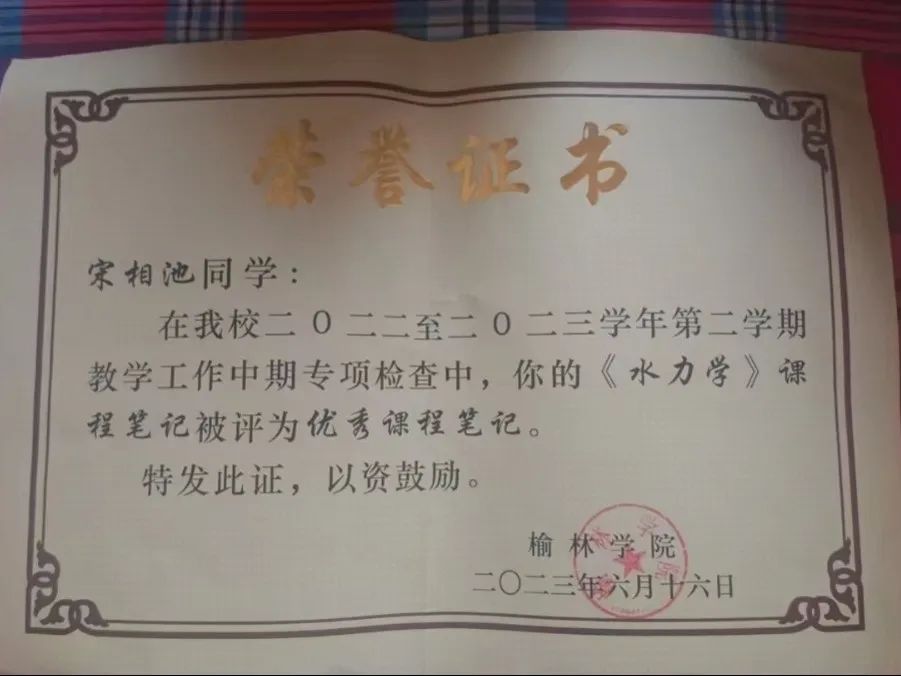 荣誉证书
宋相池同学：
在我校二〇二二至二〇二三学年第二学期
教学工作中期专项检查中，你的《水力学》课
程笔记被评为优秀课程笔记。
特发此证，以资鼓励。
榆林学院
二〇二三年六月十六日
榆林学院